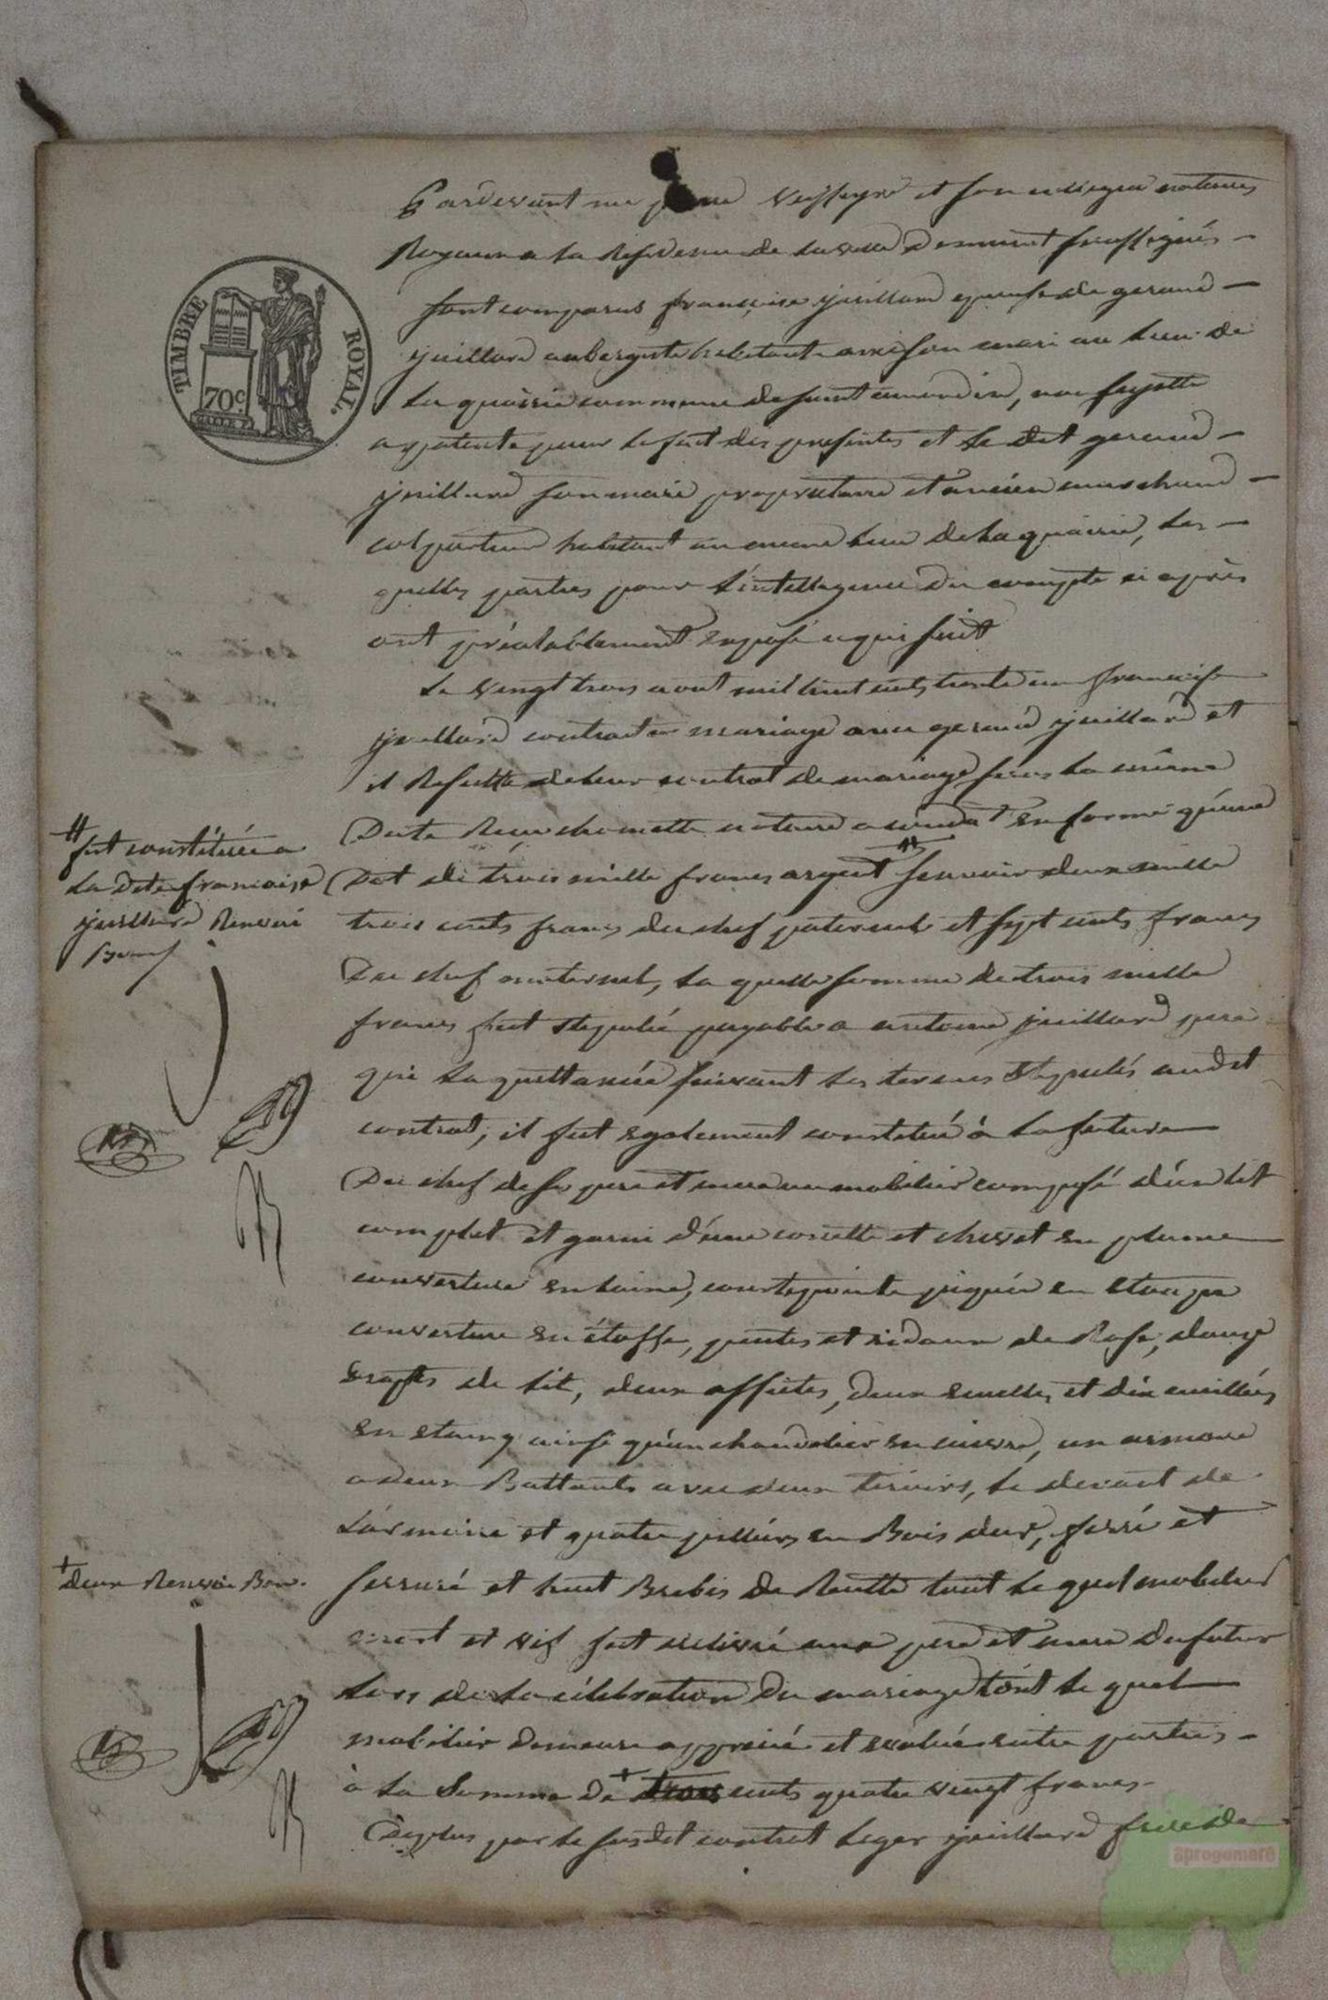 TIMBRE ROYAL.
70c
Pardevant me pierre Veysseyre et son collegue notaires
Royaux a la Residence de la ville d'ermment soussignés
sont comparus françoise juillard epouse de geraud
juillard aubergiste habitante avec son mari au lieu de
la commune de saint amandin, non sujette
a patente pour le fait des presentes et le dit geraud
juillard son mari propriétaire et ancien marchand
colporteur habitant au meme lieu de la, les
quelles parties pour l'intelligence du compte ci après
ont préalablement exposé ce qui suit
Le vingt trois aout mil huit cents trente un françoise
juillard contracta mariage avec geraud juillard et
il Resulte de leur contrat de mariage sous la même
Date Reçu chomette notaire a condat en forme qu'une
Dot de trois mille francs argent # savoir deux mille
trois cents francs du chef paternel et sept cents francs
Du chef maternel, la quelle somme de trois mille
francs fut stipulée payable a antoine juillard pere
qui la quittancée suivant les termes stipulés au dit
contrat, il fut egalement constitué à la future
Du chef de ses pere et mere un mobilier composé d'un lit
complet et garni d'une couette et chevet en plume
couverture en laine, courtepointe piquée en etoupe
couverture en étoffe, pentes et ridaux de Rase, douze
draps de lit, deux assietes, deux ecuelles et dix cuillères
en etaing ainsi qu'un chandelier en cuivre, un armoire
a deux Battants avec deux tiroirs, le devant de
l'armoire et quatre pilliers en Bois dur, ferré et
serruré et huit Brebis de Reulle tout le quel mobilier
mort et vif fut delivré aux pere et mere du futur
Lors de la célébration du mariage tout le quel
mobilier demeure apprecié et evalué entre parties
à la Somme De + cents quatre vingt francs.
De plus par le susdit contrat leger juillard frere de
# fut constituée a
la dite françoise
juillard Renvoi
Bon
+ deux Renvoi Bon.
aprogemere